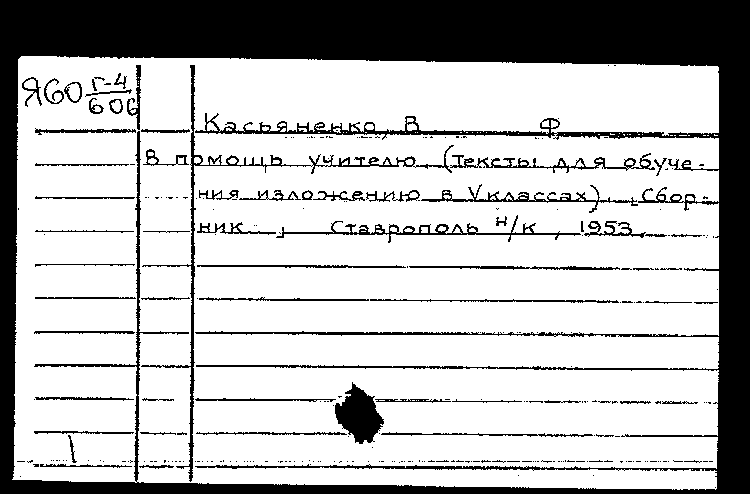 Я60 Г-4/606
Касьяненко, В Ф
В помощь учителю. (Тексты для обуче-
ния изложению в V классах). Сбор-
ник , Ставрополь н/К , 1953.
1